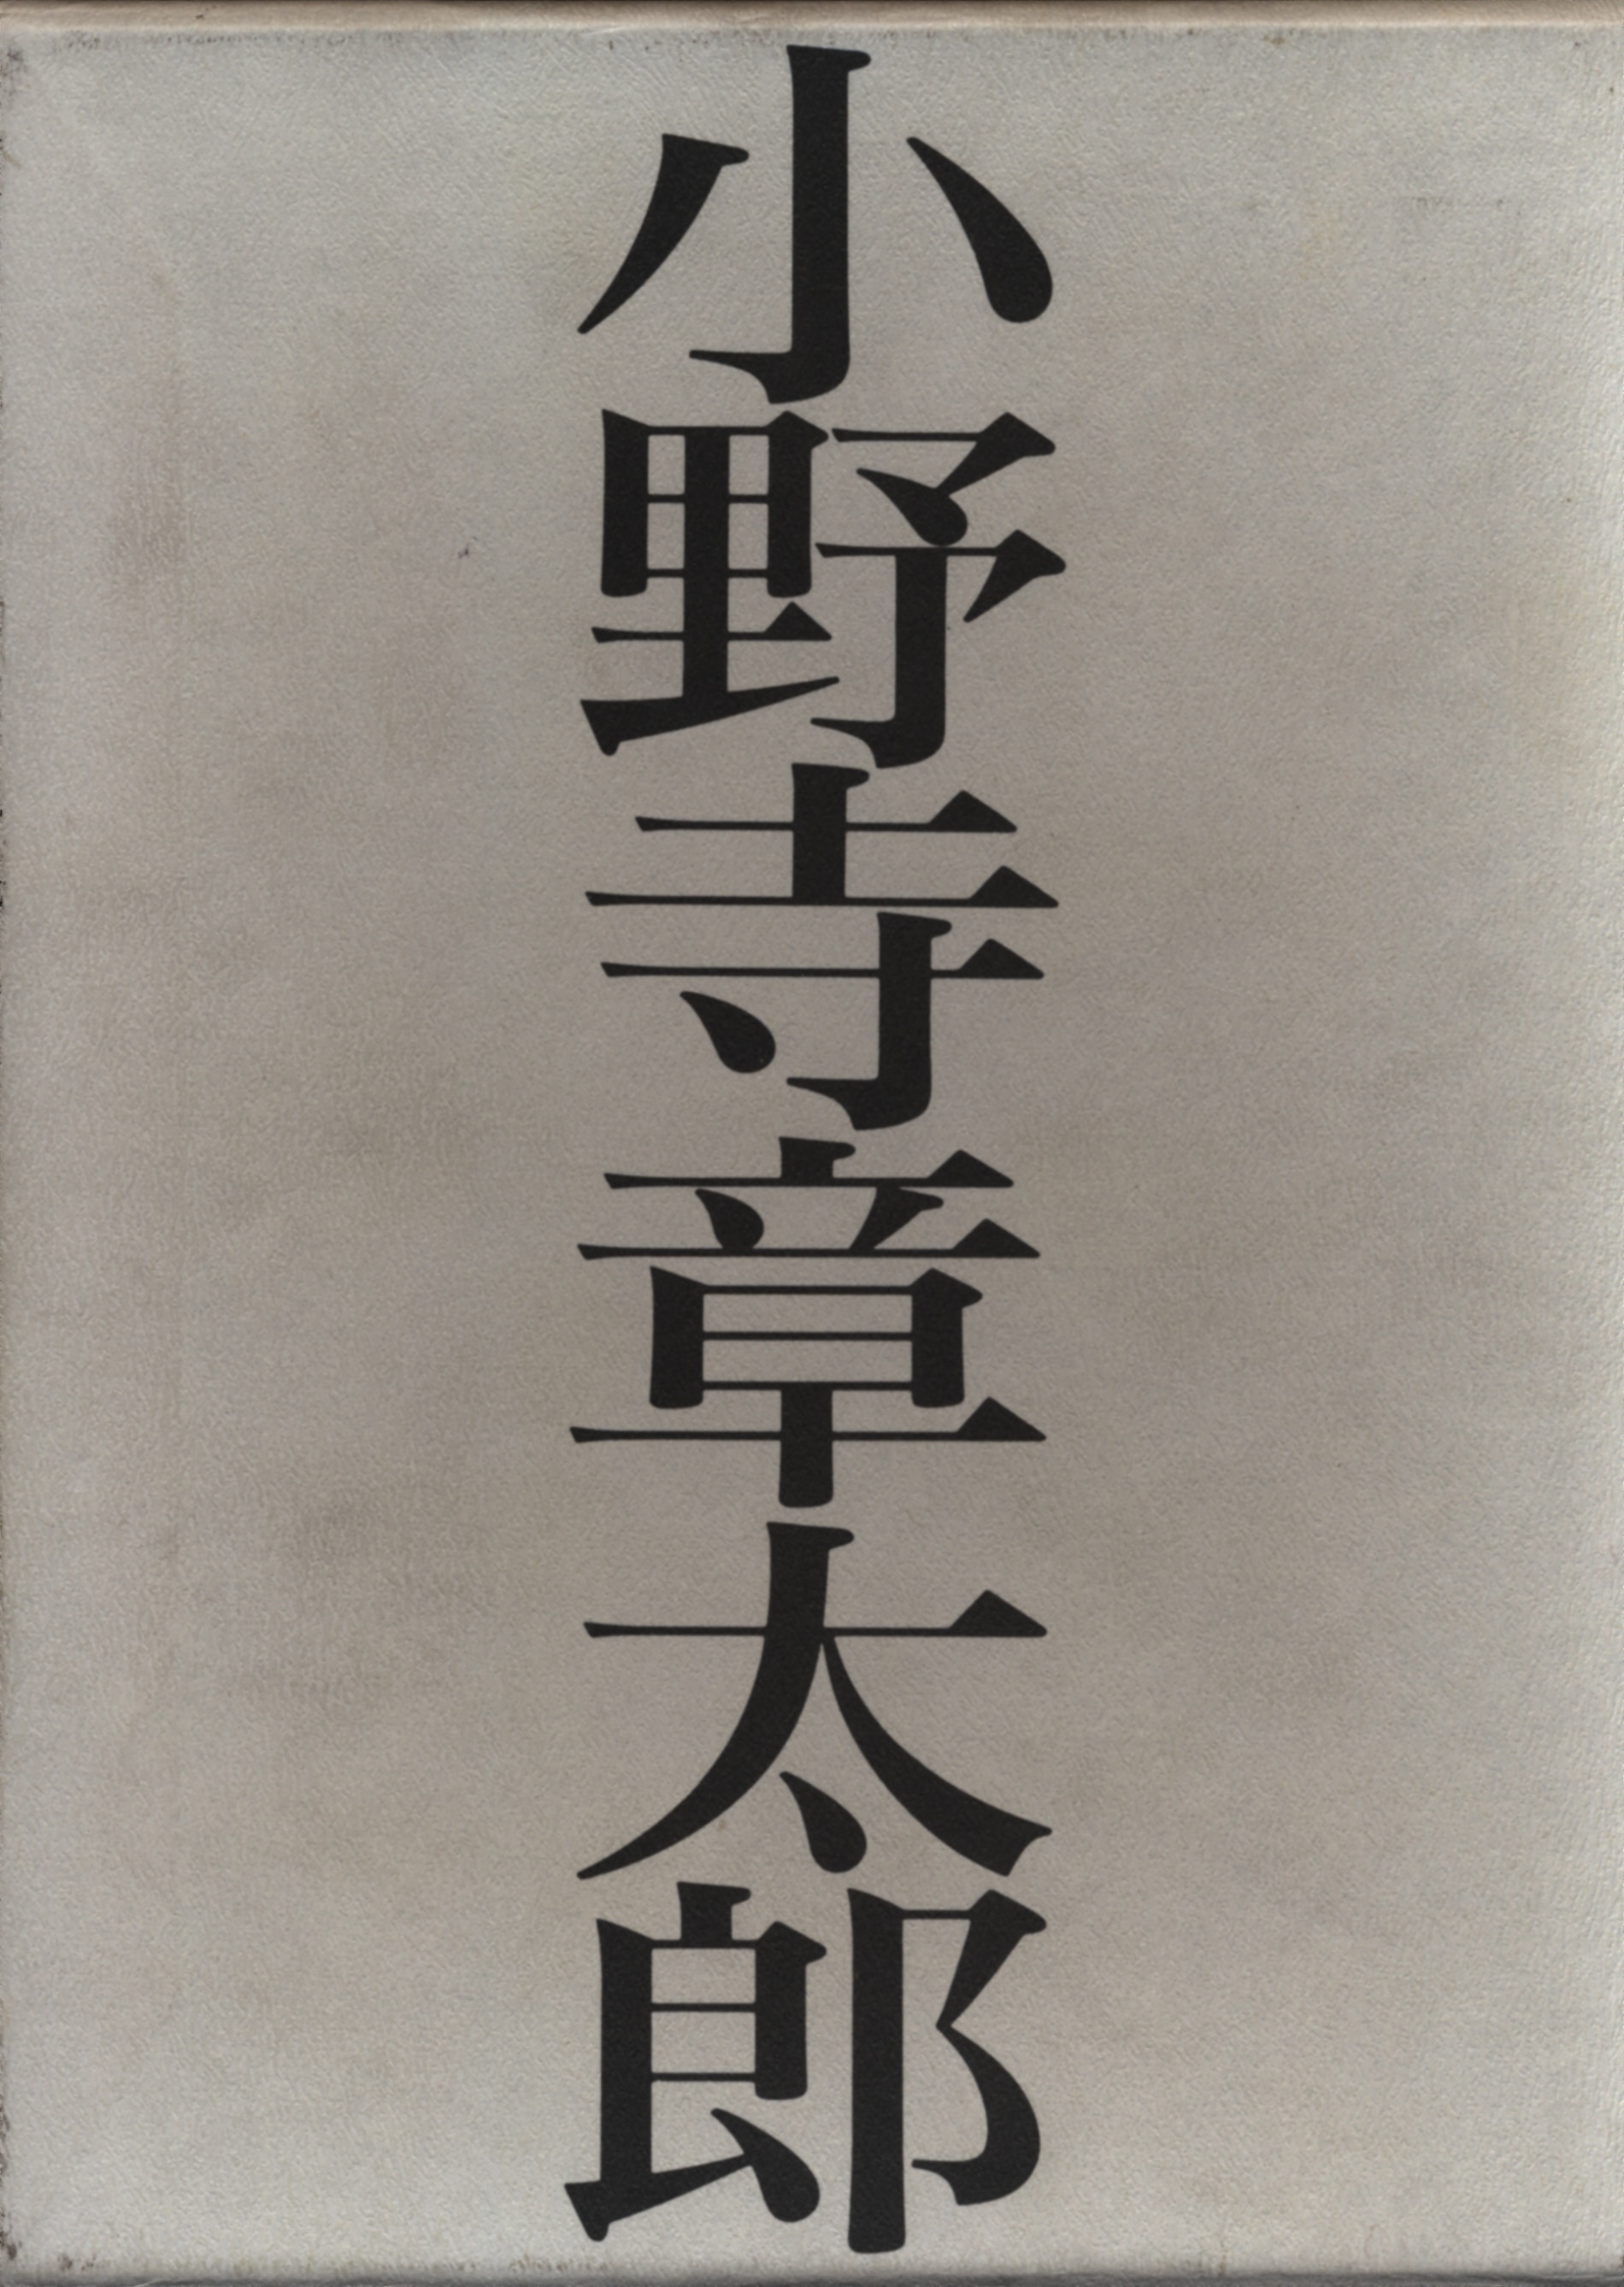 小野寺章太郎